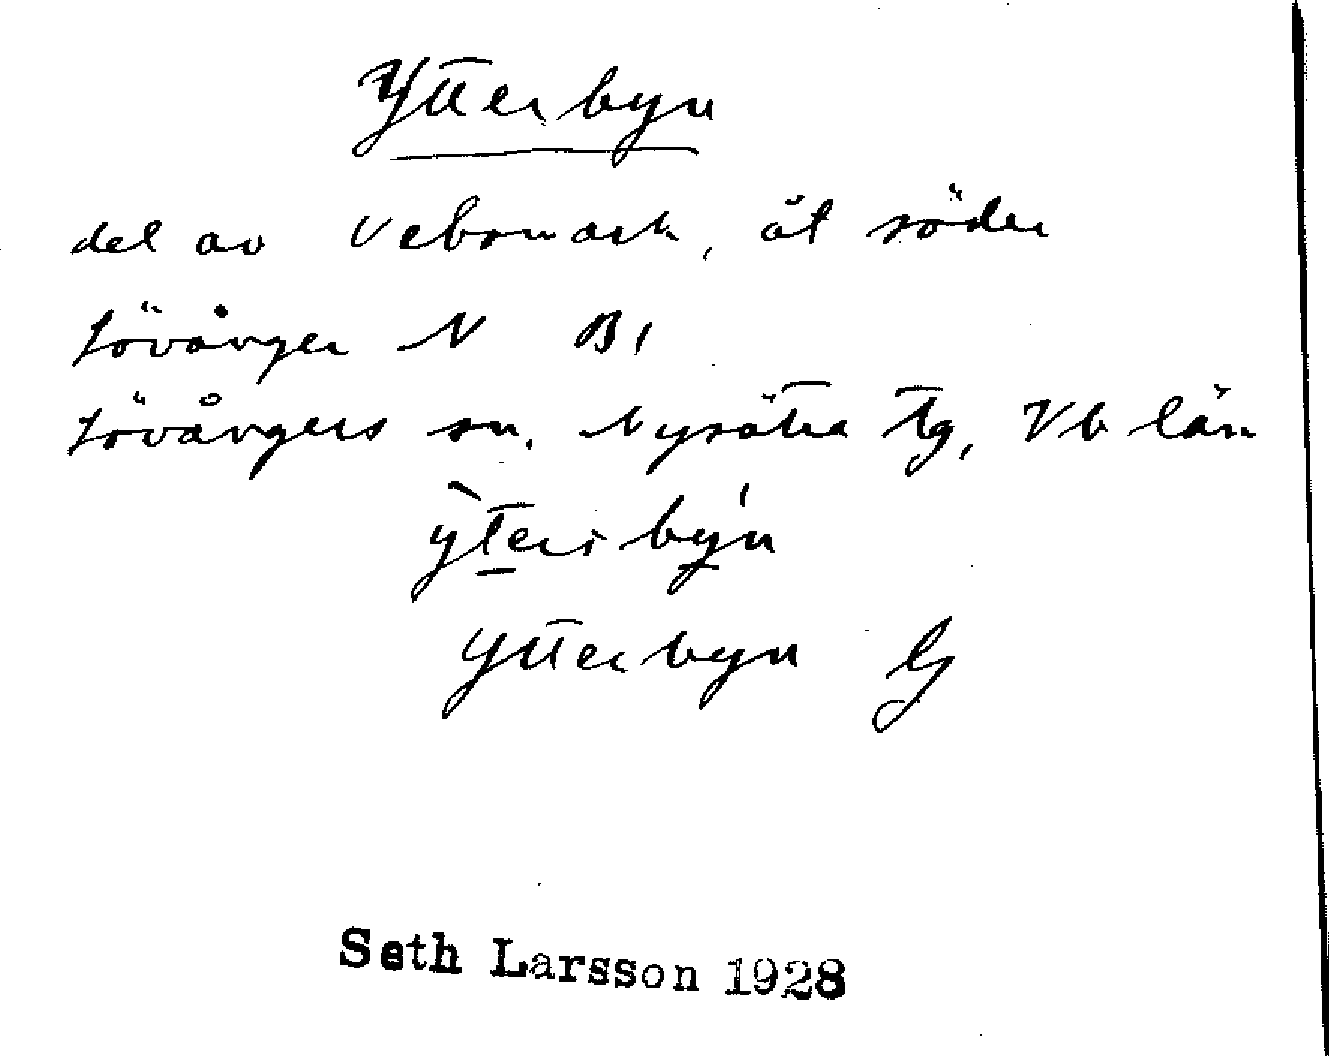 Ytterbyn
del av Vebomark, åt söder
Lövånger N B1
Lövångers sn, Nysätra tg, Vb län
Ytterbyn G
Seth Larsson 1928